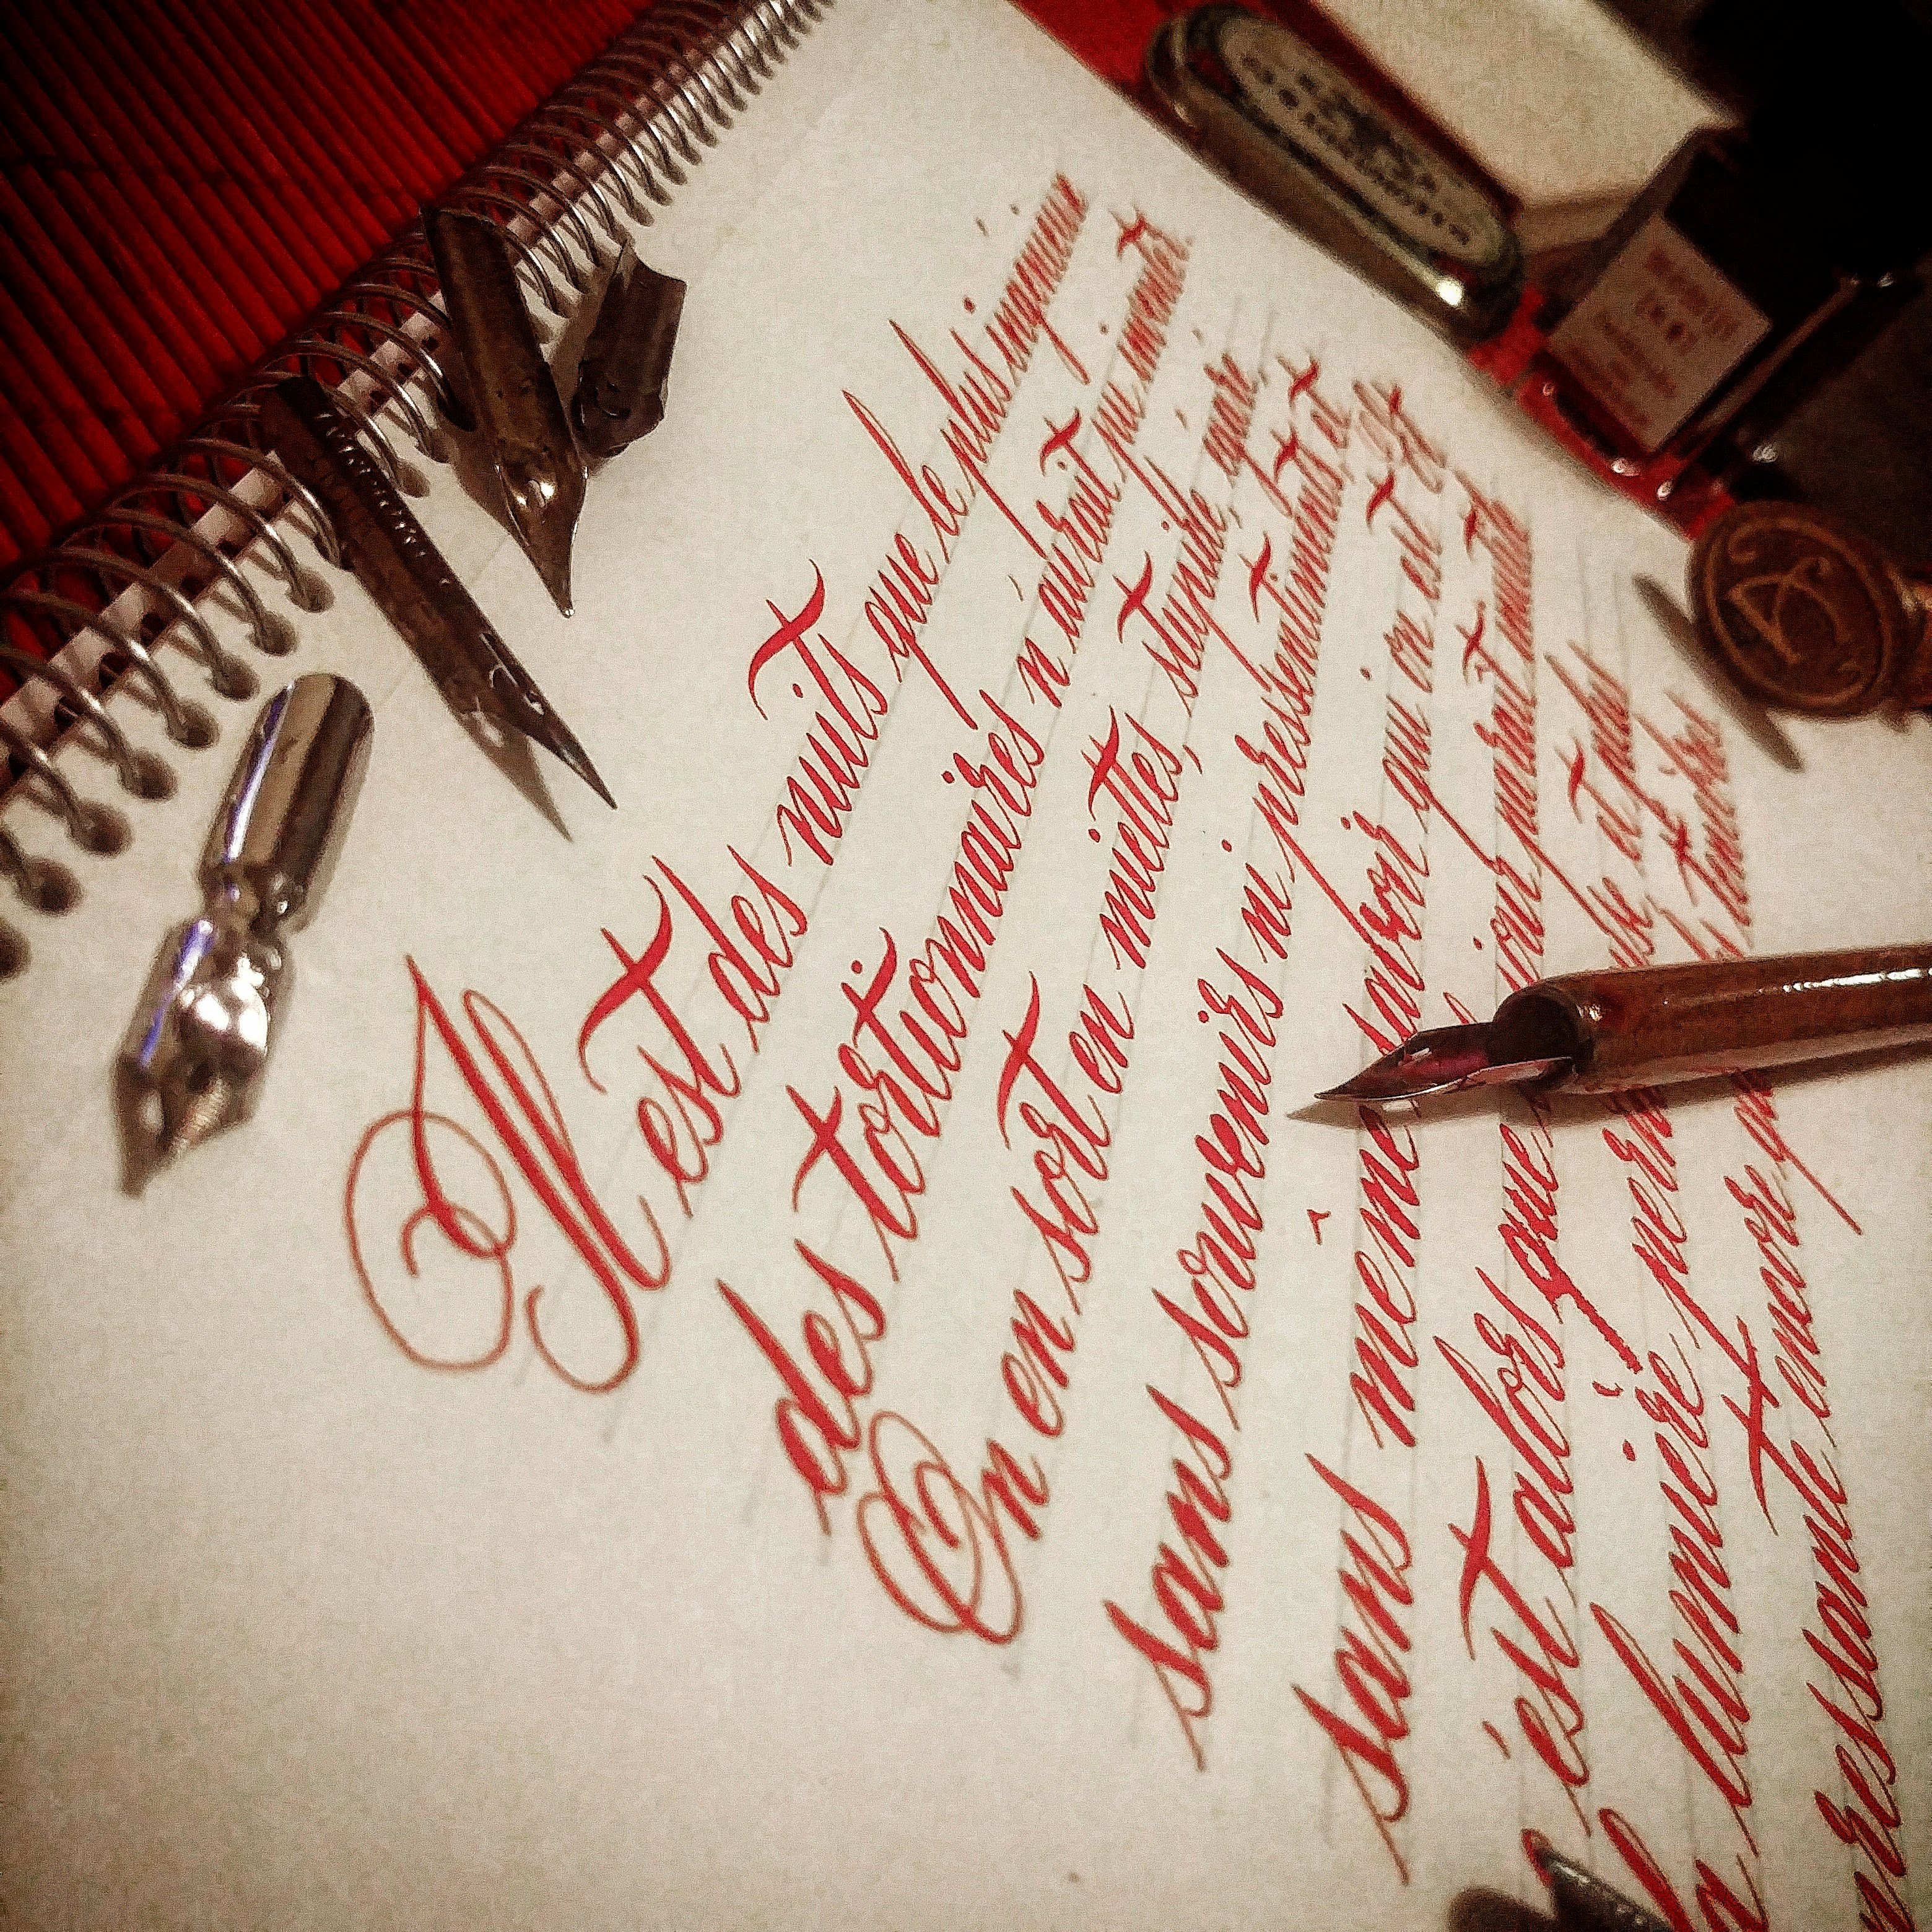 Il est des nuits que le plus ingénieux
des tortionnaires n'aurait pu inventer.
On en sort en miettes, stupide, égaré,
sans souvenirs ni pressentiments, et
sans même savoir qui on est. Et
c'est alors que jour paraît inutile
la lumière et plus
pressante encore ténèbres